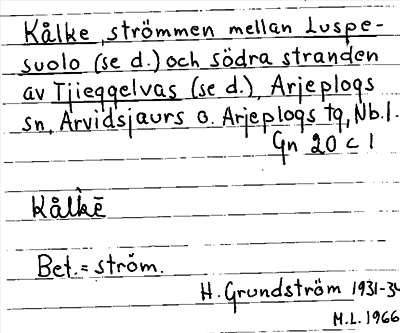 Kålke, strömmen mellan Luspe-
suolo (se d.) och södra stranden
av Tjieggelvas (se d.), Arjeplogs
sn, Arvidsjaurs o. Arjeplogs tg, Nb.l.
Gn 20 c 1
Kål̄kē
Bet. = ström.
H. Grundström 1931-34
M.L. 1966